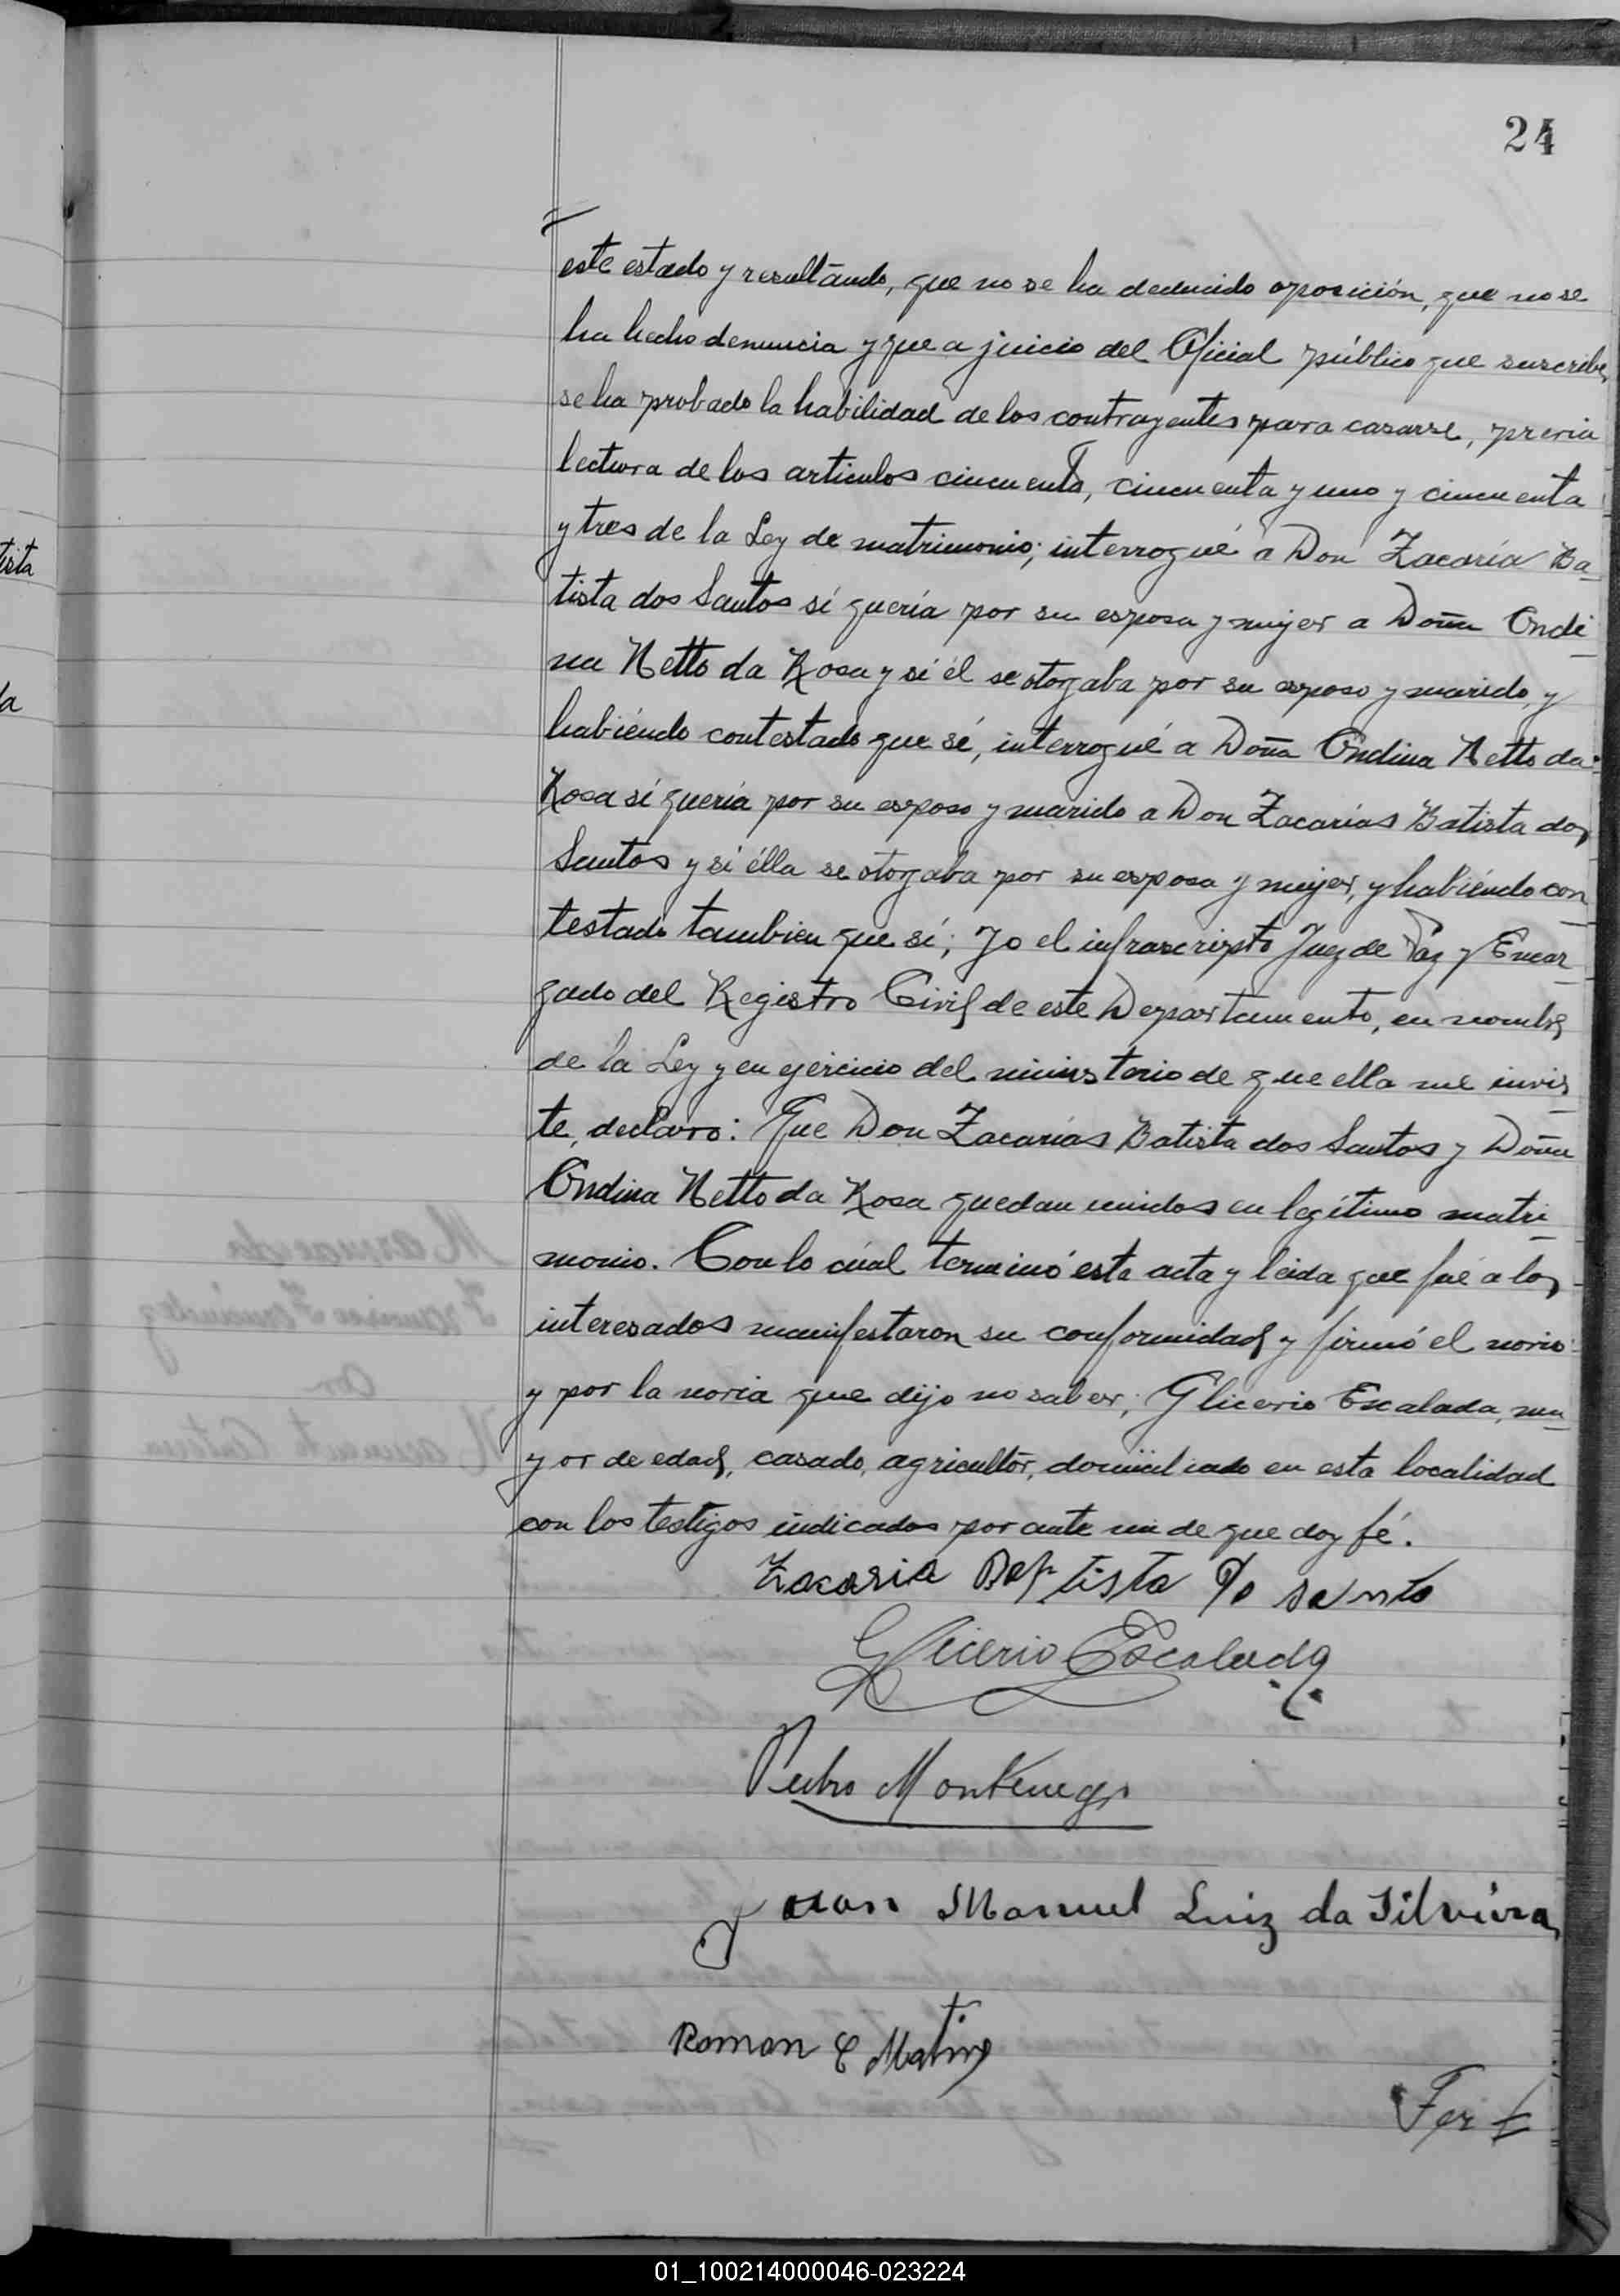 24
este estado y resultando, que no se ha deducido oposición, que no se
ha hecho denuncia y que a juicio del Oficial público que suscribe,
se ha probado la habilidad de los contrayentes para casarse, previa
lectura de los articulos cincuenta, cincuenta y uno y cincuenta
y tres de la Ley de matrimonio; interrogué a Don Zacaría Ba-
tista dos Santos si quería por su esposa y mujer a Doña Ondi-
na Netto da Rosa y si él se otorgaba por su esposo y marido, y
habiéndo contestado que sí, interrogué a Doña Ondina Netto da
Rosa si quería por su esposo y marido a Don Zacarías Batista dos
Santos y si élla se otorgaba por su esposa y mujer, y habiéndo con-
testado tambien que sí; Yo el infrascripto Juez de Paz y Encar-
gado del Registro Civil de este Departamento, en nombre
de la Ley y en ejercicio del ministerio de que ella me invis-
te, declaro: Que Don Zacarías Batista dos Santos y Doña
Ondina Netto da Rosa quedan unidos en legítimo matri-
monio. Con lo cúal terminó esta acta y leida que fué a los
interesados manifestaron su conformidad y firmó el novio
y por la novia que dijo no saber; Glicerio Escalada, ma-
yor de edad, casado, agricultor, domiciliado en esta localidad
con los testigos indicados por ante mi de que doy fé.
Zacaria Baptista Do santo
Glicerio Escalada
Pedro Montenegro
Juan Manuel Luiz da Silveira
Roman C Matinz
tista
da
01_100214000046-023224